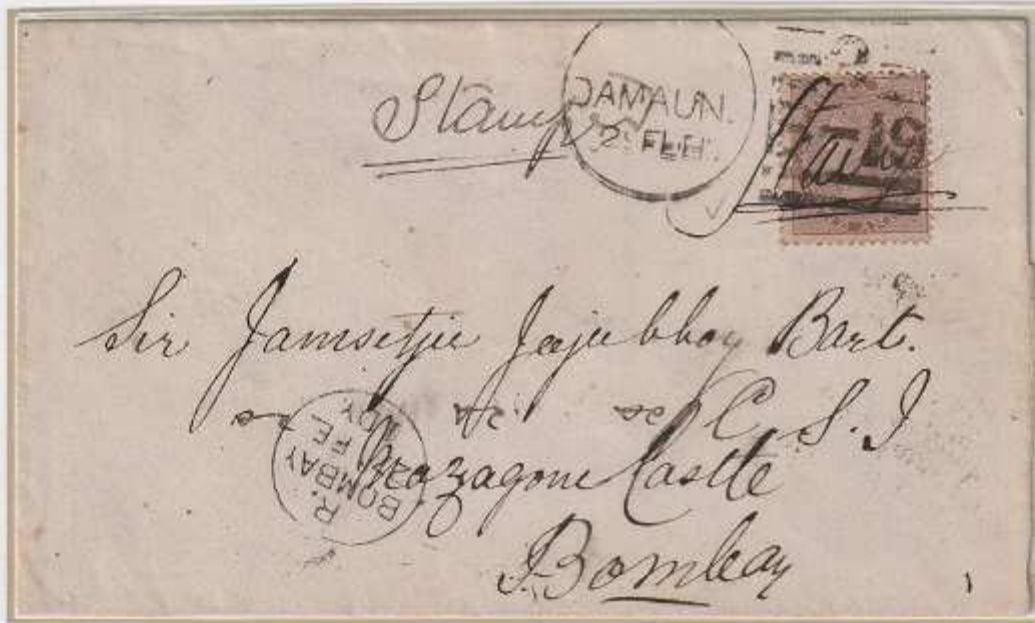 Stamp
DAMAUN.
2 FEB.
51
Sir Jamsetjee Jejeebhoy Bart.
C. S. I
Mazagone Castle
Bombay
R.
BOMBAY
FE